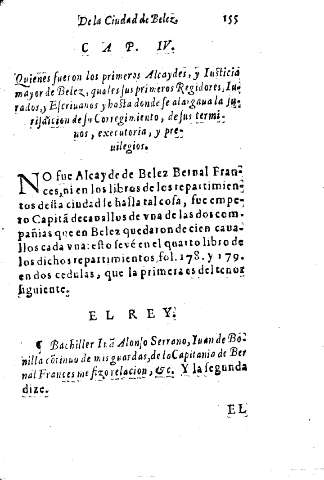 De la Ciudad de Belez. 155
CAP. IV.
Quienes fueron los primeros Alcaydes, y Iusticia
mayor de Belez, quales sus primeros Regidores, Iu-
rados, y Escriuanos y hasta donde se alargaua la ju-
risdicion de su Corregimiento, de sus termi-
nos, executoria, y pre-
uilegios.
NO fue Alcayde de Belez Bernal Fran-
ces, ni en los libros de los repartimien-
tos desta ciudad se halla tal cosa, fue empe-
ro Capitã de cauallos de vna de las dos com-
pañias que en Belez quedaron de cien caua-
llos cada vna: esto se vé en el quarto libro de
los dichos repartimientos, fol. 178. y 179.
en dos cedulas, que la primera es del tenor
siguiente.
EL REY.
¶ Bachiller Iuã Alonso Serrano, Iuan de Bo-
nilla cõtinuo de mis guardas, de la Capitania de Ber
nal Frances me fizo relacion, &c. Y la segunda
dize.
EL